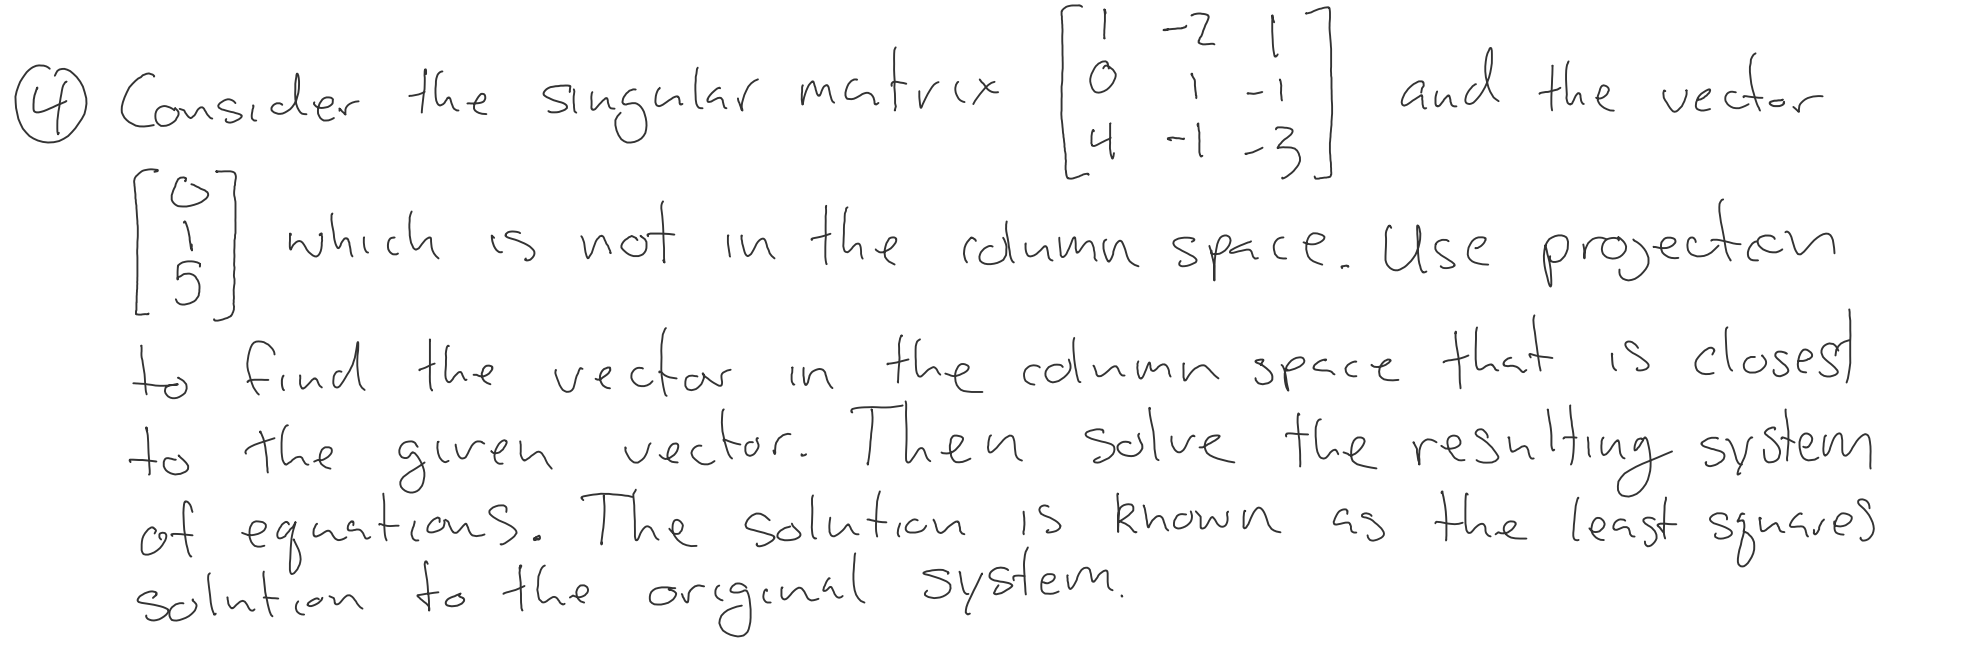 ④ Consider the singular matrix [1 -2 1; 0 1 -1; 4 -1 -3] and the vector
[0; 1; 5] which is not in the column space. Use projection
to find the vector in the column space that is closest
to the given vector. Then solve the resulting system
of equations. The solution is known as the least squares
solution to the original system.